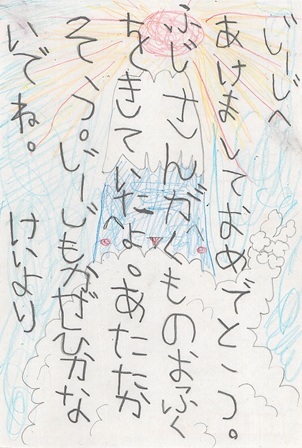 じーじへ
あけましておめでとう。
ふじさんがくものおふく
をきていたよ。あたたか
そう。じーじもかぜひかな
いでね。 けいより